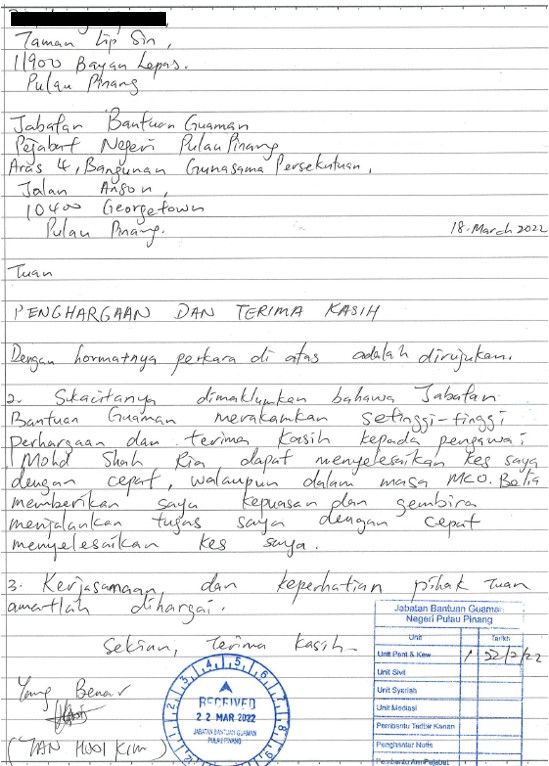 Taman Lip Sin,
11900 Bayan Lepas.
Pulau Pinang
Jabatan Bantuan Guaman
Pejabat Negeri Pulau Pinang
Aras 4, Bangunan Gunasama Persekutuan,
Jalan Anson,
10400 Georgetown
Pulau Pinang.
18. March 2022
Tuan
PENGHARGAAN DAN TERIMA KASIH
Dengan hormatnya perkara di atas adalah dirujukan.
2. Sukacitanya dimaklumkan bahawa Jabatan
Bantuan Guaman merakamkan setinggi-tinggi
perhargaan dan terima kasih kepada pengawai
Mohd Shah Ria dapat menyelesaikan kes saya
dengan cepat, walaupun dalam masa MCO. Belia
memberikan saya kepuasan dan gembira
menjalankan tugas saya dengan cepat
menyelesaikan kes saya.
3. Kerjasamaan dan keperhatian pihak tuan
amatlah dihargai.
Sekian, terima kasih
Yang Benar
(TAN HOOI KIM)
RECEIVED
22 MAR 2022
JABATAN BANTUAN GUAMAN
PULAU PINANG
Jabatan Bantuan Guaman
Negeri Pulau Pinang
Unit Tarikh
Unit Pent & Kew / 22/2/22
Unit Sivil
Unit Syariah
Unit Mediasi
Pembantu Tadbir Kanan
Penghantar Notis
Pembantu Am Pejabat